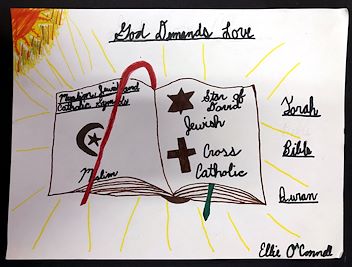 God Demands Love
Muslim, Jewish and
Catholic Symbols
Muslim
Star of
David
Jewish
Cross
Catholic
Torah
Bible
Quran
Ellie O'Connell